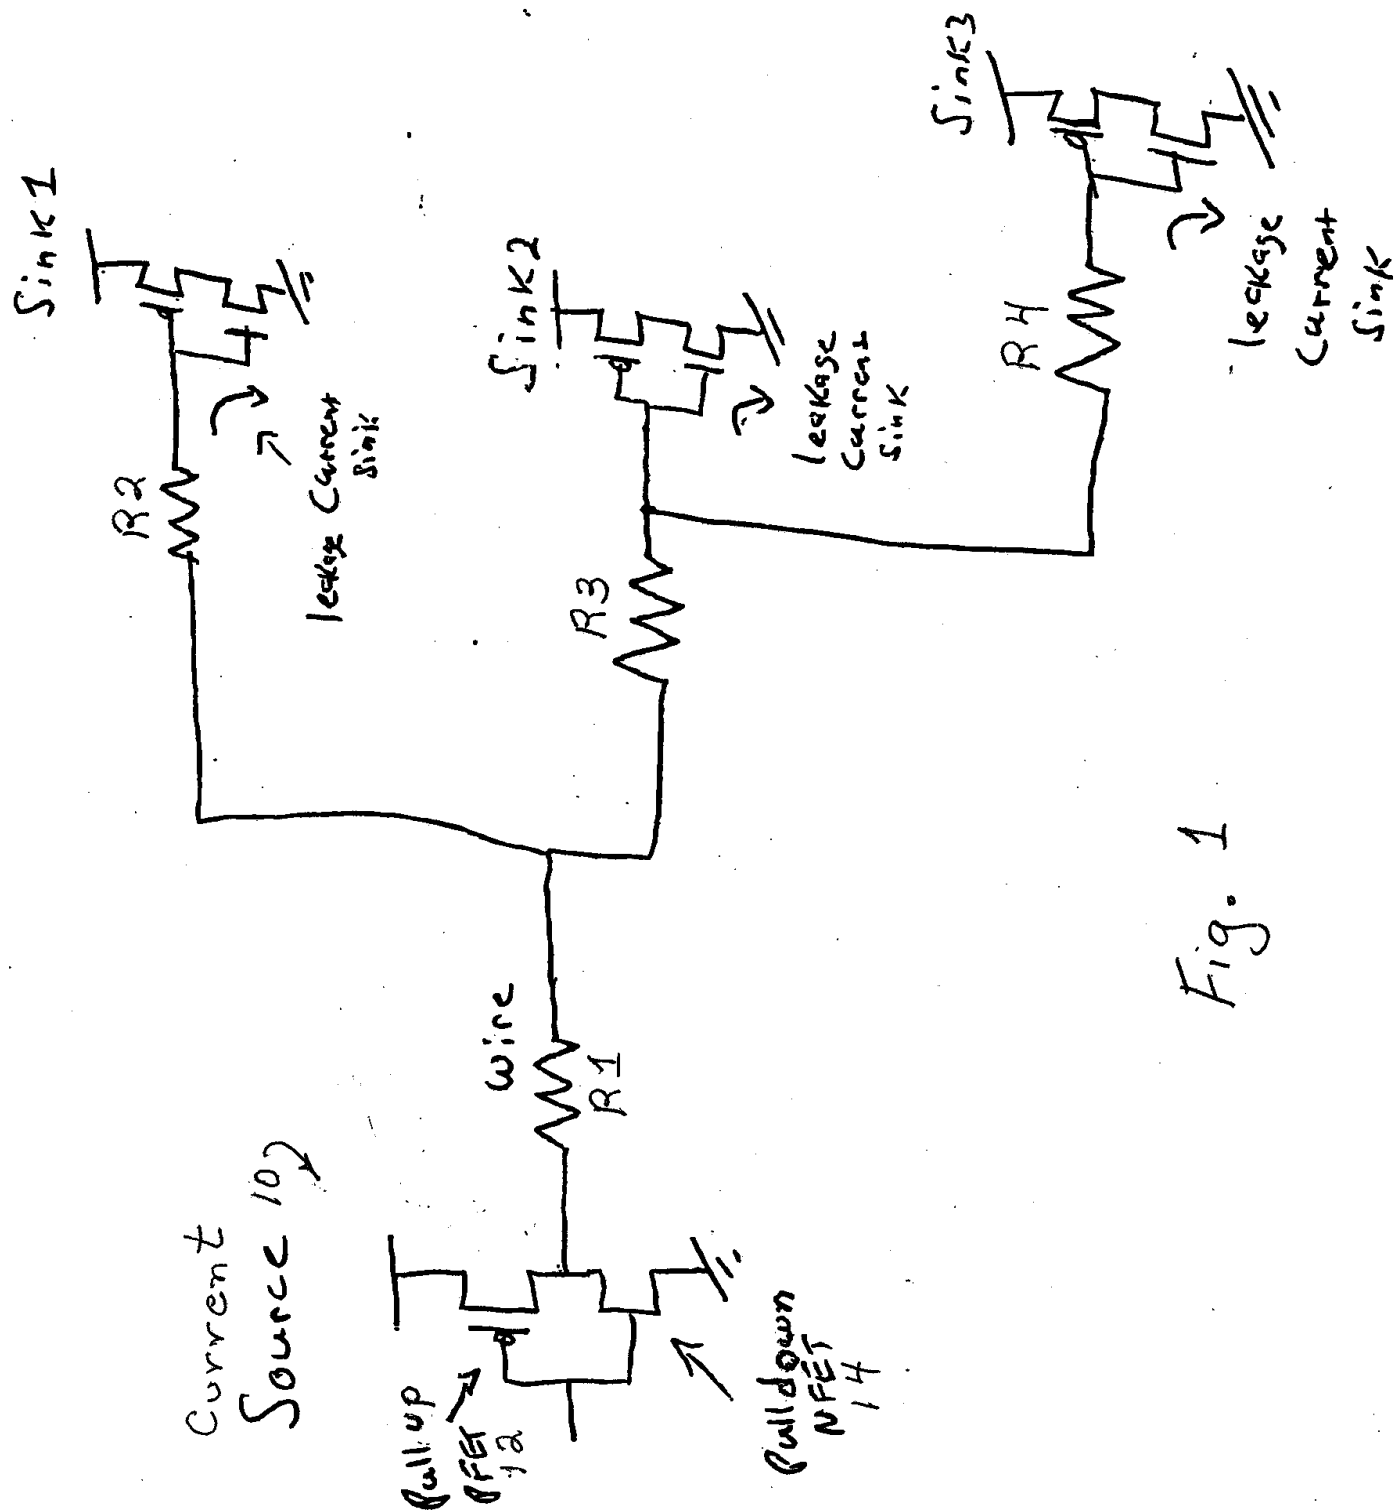 Current
Source 10
Pull up
PFET
12
Pulldown
NFET
14
Wire
R1
R2
Sink1
leakage Current
Sink
R3
Sink2
leakage
Current
Sink
R4
Sink3
leakage
Current
Sink
Fig. 1